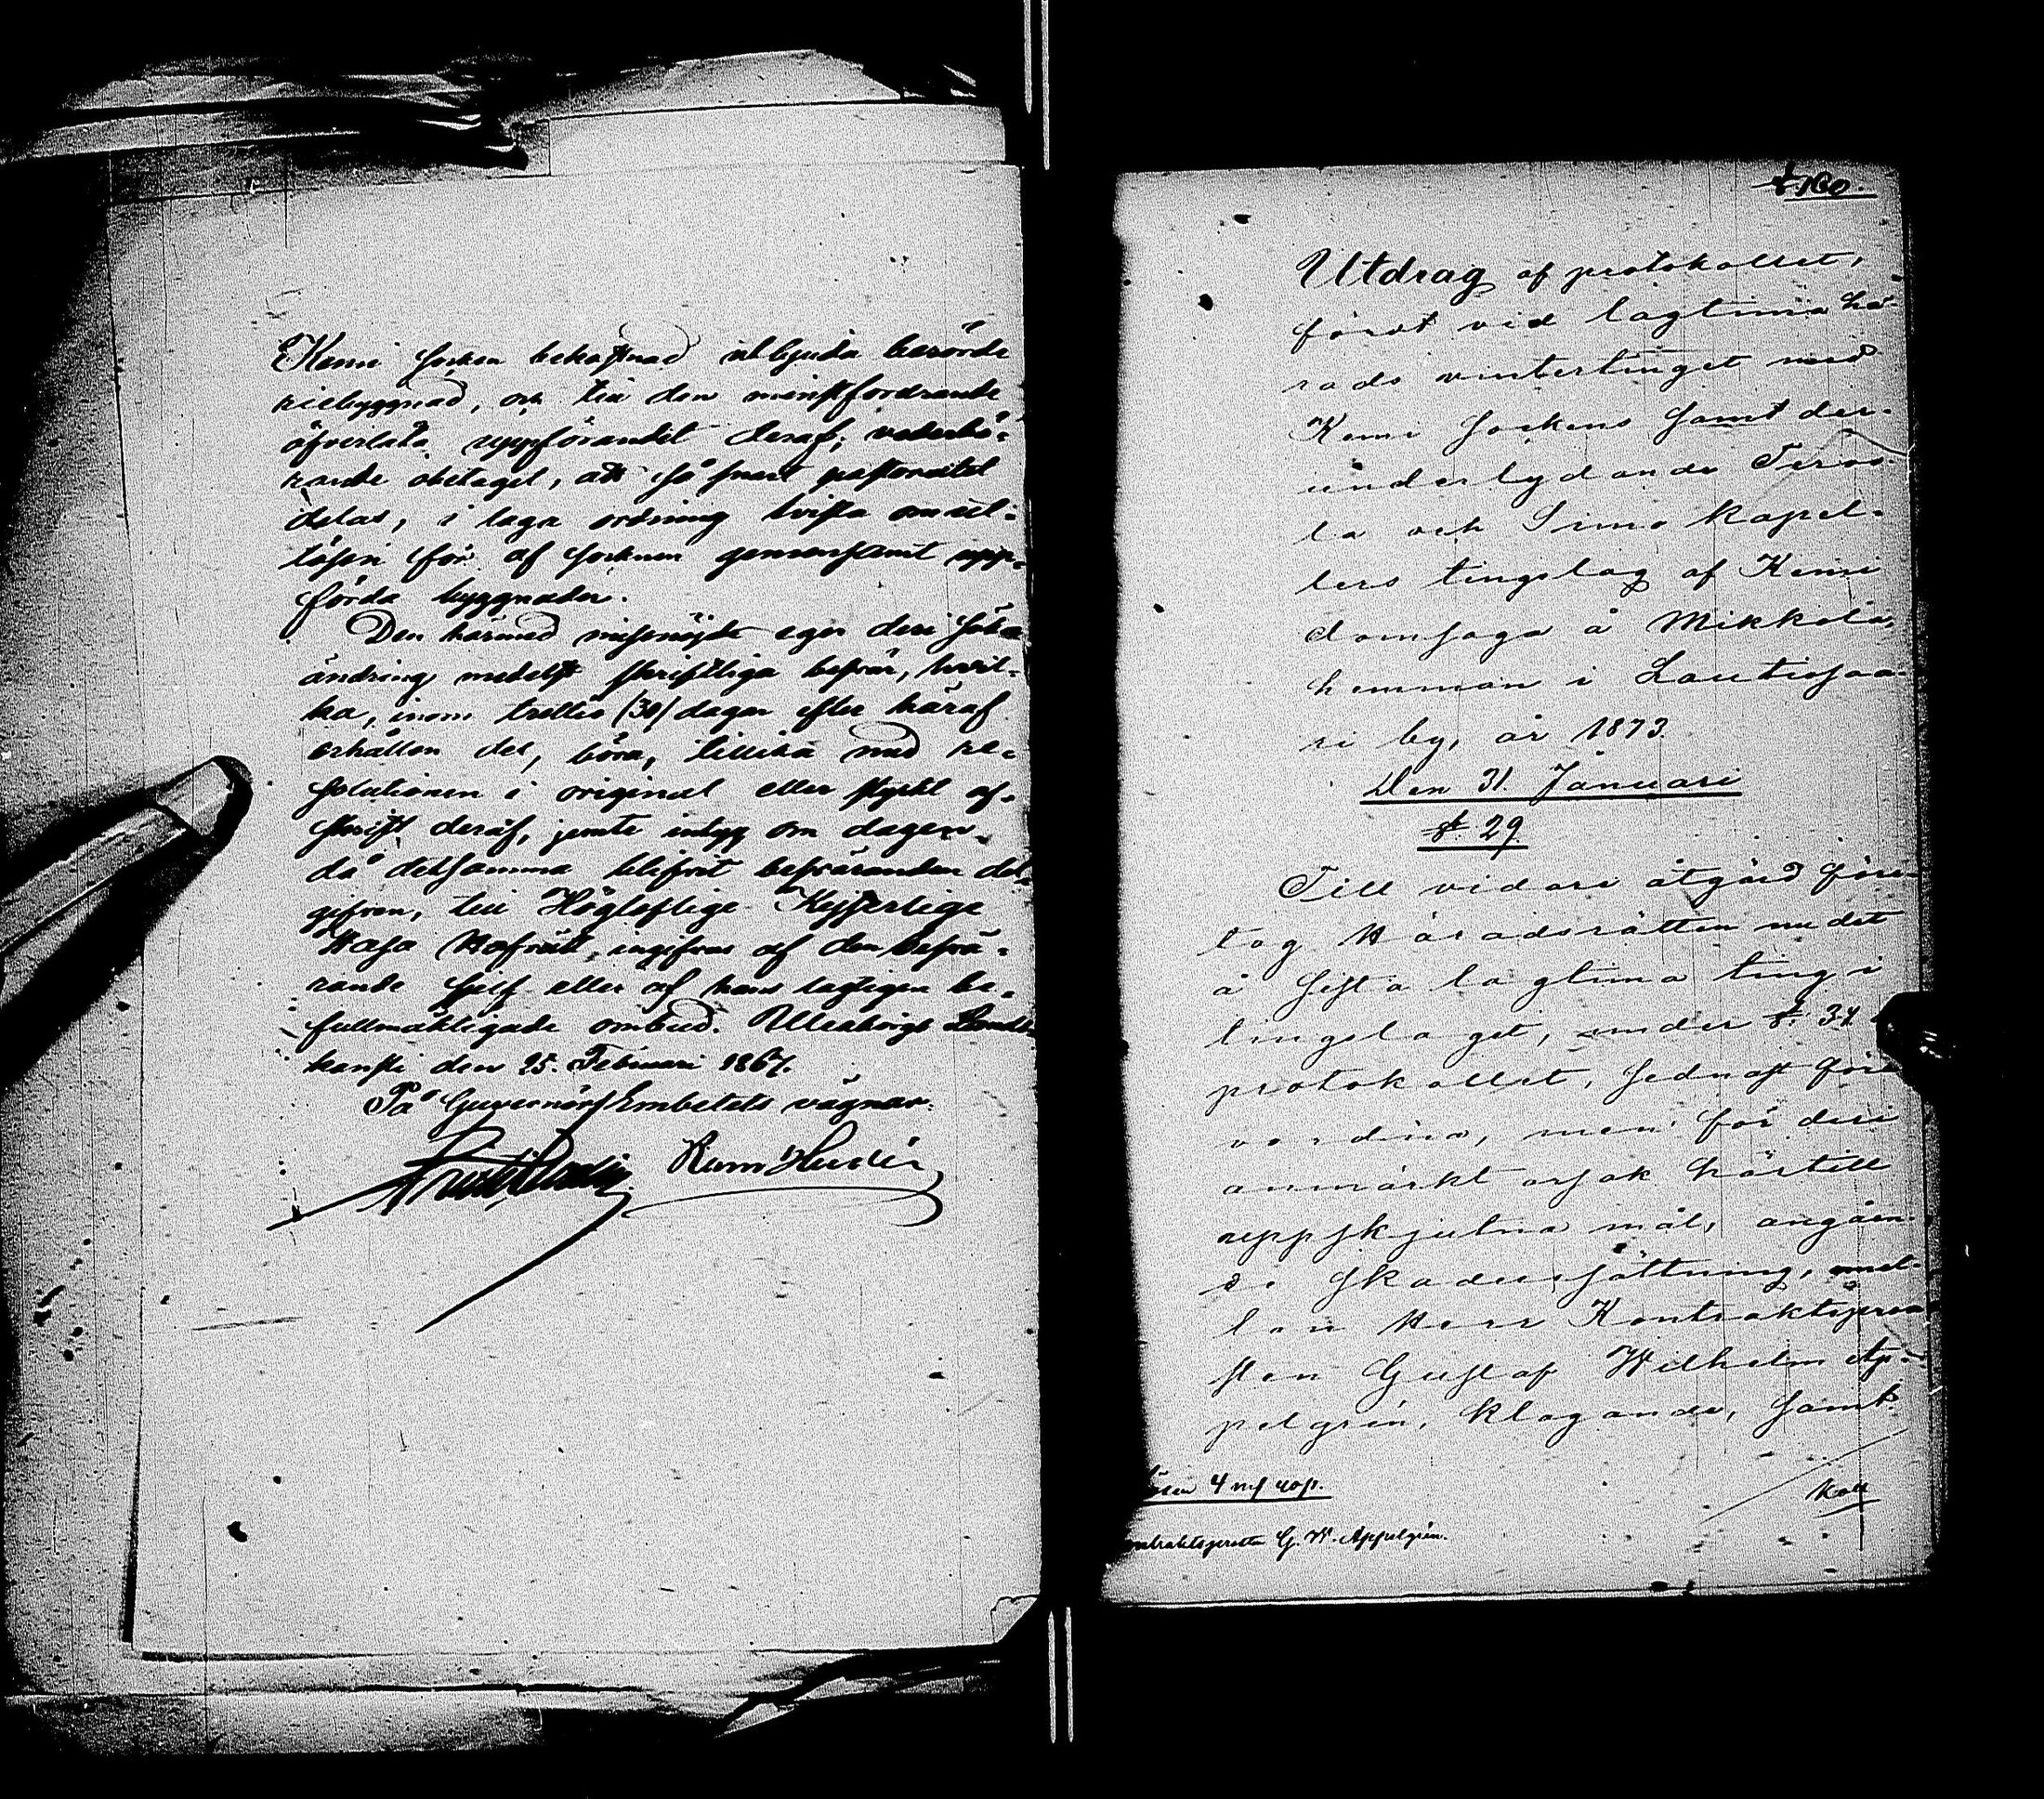 Kemi socken bekostnad utbjuda berörde
riebyggnad, och till den minstfordrande
öfverlåta uppförandet deraf; vederbö-
rande obetaget, att så snart pastoratet
delas, i laga ordning tvista om ut-
lösen för af socknen gemensamt upp-
förda byggnader.
Den härmed missnöjde eger deri söka
ändring medelst skriftliga besvär, hvil-
ka, inom trettio /30/ dagar efter häraf
erhållen del, böra, tillika med re-
solutionen i original eller styrkt af-
skrift deraf, jemte intyg om dagen
då detsamma blifvit besväranden del-
gifven, till Högloflige Kejserlige
Wasa Hofrätt ingifvas af den besvä-
rande sjelf eller af hans lagligen be-
fullmäktigade ombud. Uleåborgs Lands-
kansli den 25. Februari 1867.
På Guvernörs Embetets vägnar.
160.
Utdrag af protokollet,
fördt vid lagtima hä-
rads vintertinget med
Kemi Sockens samt der-
underlydande Tervo-
la och Simo kapel-
lers tingslag af Kemi
domsaga å Mikkola
hemman i Lautiosaa-
ri by, år 1873.
Den 31. Januari
§. 29.
Till vidare åtgärd före-
tog Häradsrätten nu det
å sista lagtima ting i
tingslaget, under §. 34
protokollet, sednast före-
vordna, men för deri
anmärkt orsak härtill
uppskjutna mål, angåen-
de skadersättning, mel-
lan Herr Kontraktspro-
sten Gustaf Wilhelm Ap-
pelgrén, klagande, samt
Lösen 4 mf 40 p.
Koll
Kontraktsprosten G. W. Appelgrén.